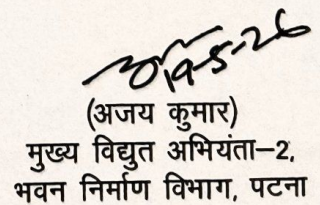 19-5-26
(अजय कुमार)
मुख्य विद्युत अभियंता-2,
भवन निर्माण विभाग, पटना